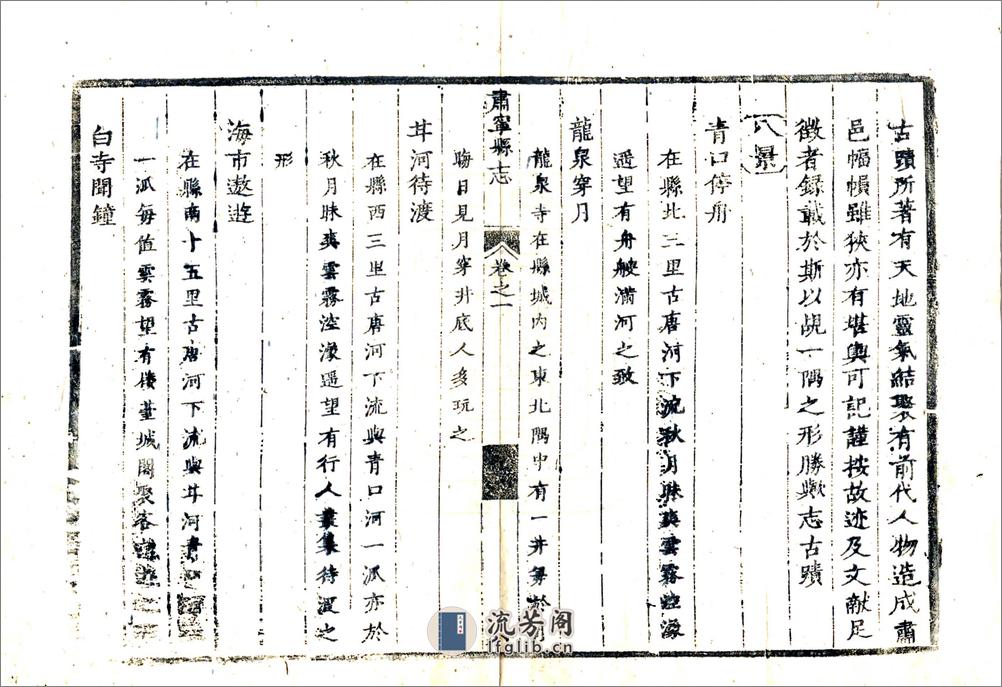 古蹟所著有天地靈氣結聚有前代人物造成肅
邑幅幀雖狹亦有堪輿可記謹按故迹及文献足
徵者錄載於斯以覘一隅之形勝歟志古蹟
八景
青口停舟
在縣北三里古唐河下流秋月昧爽雲霧涳濛
遥望有舟舩滿河之致
龍泉穿月
龍泉寺在縣城内之東北隅中有一井每於
晦日見月穿井底人多玩之
肅寧縣志
卷之一
丼河待渡
在縣西三里古唐河下流與青口河一派亦於
秋月昧爽雲霧涳濛遥望有行人叢集待渡之
形
海市遨遊
在縣南十五里古唐河下流與丼河青
一派每值雲霧望有樓臺城閣聚客遨遊之
白寺聞鐘
流芳阁
lfglib.cn